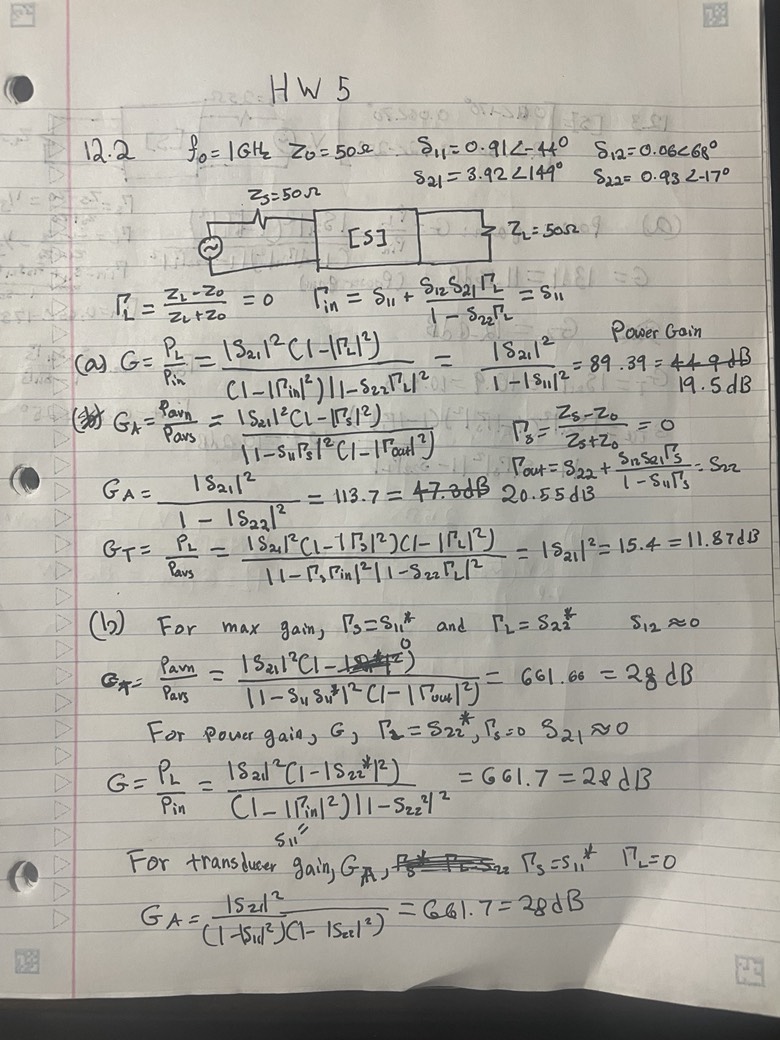 HW 5
12.2 f₀=1GHz Z₀=50Ω S₁₁=0.91∠-44° S₁₂=0.06<68°
S₂₁=3.92∠149° S₂₂=0.93∠-17°
Zs=50Ω
[S] Z_L=50Ω
Γ_L = (Z_L-Z₀)/(Z_L+Z₀) = 0 Γin = S₁₁ + (S₁₂S₂₁Γ_L)/(1-S₂₂Γ_L) = S₁₁
Power Gain
(a) G = P_L/Pin = |S₂₁|²(1-|Γ_L|²)/((1-|Γin|²)|1-S₂₂Γ_L|²) = |S₂₁|²/(1-|S₁₁|²) = 89.39 = 44.9dB
19.5dB
G_A = Pavn/Pavs = |S₂₁|²(1-|Γs|²)/(|1-S₁₁Γs|²(1-|Γout|²)) Γs = (Zs-Z₀)/(Zs+Z₀) = 0
Γout = S₂₂ + (S₁₂S₂₁Γs)/(1-S₁₁Γs) = S₂₂
G_A = |S₂₁|²/(1-|S₂₂|²) = 113.7 = 47.3dB 20.55dB
G_T = P_L/Pavs = |S₂₁|²(1-|Γs|²)(1-|Γ_L|²)/(|1-ΓsΓin|²|1-S₂₂Γ_L|²) = |S₂₁|² = 15.4 = 11.87dB
(b) For max gain, Γs=S₁₁* and Γ_L=S₂₂* S₁₂≈0
= Pavn/Pavs = |S₂₁|²(1- 0)/(|1-S₁₁S₁₁*|²(1-|Γout|²)) = 661.66 = 28dB
For power gain, G, Γ_L=S₂₂*, Γs=0 S₂₁≈0
G = P_L/Pin = |S₂₁|²(1-|S₂₂*|²)/((1-|Γin|²)|1-S₂₂²|²) = 661.7 = 28dB
S₁₁"
For transducer gain, G_A, Γs=S₁₁* Γ_L=0
G_A = |S₂₁|²/((1-|S₁₁|²)(1-|S₂₂|²)) = 661.7 = 28dB